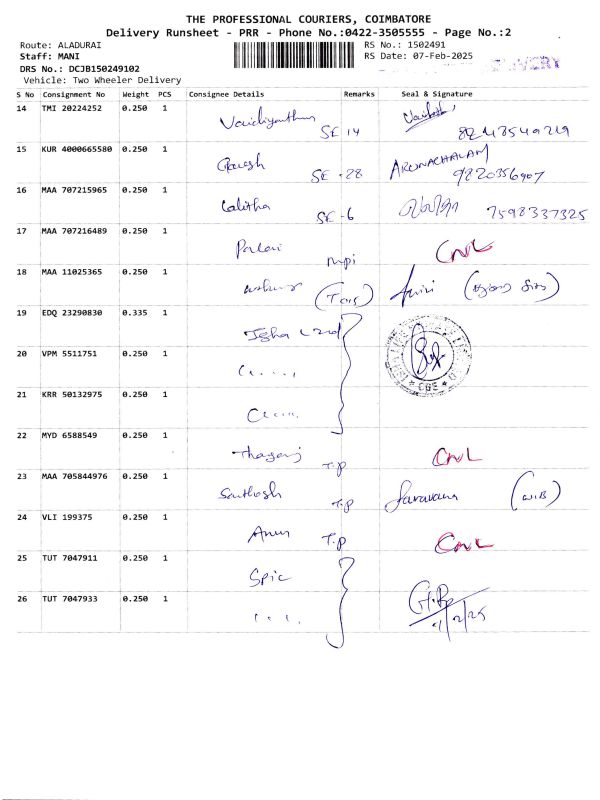 THE PROFESSIONAL COURIERS, COIMBATORE
Delivery Runsheet - PRR - Phone No.:0422-3505555 - Page No.:2
Route: ALADURAI
RS No.: 1502491
Staff: MANI
RS Date: 07-Feb-2025
DRS No.: DCJB150249102
DELIVERY
Vehicle: Two Wheeler Delivery
S No Consignment No Weight PCS Consignee Details Remarks Seal & Signature
14 TMI 20224252 0.250 1
SE 14
15 KUR 4000665580 0.250 1 Ganesh SE - 28 ARUNACHALAM
16 MAA 707215965 0.250 1 Lalitha SE - 6 7598337325
17 MAA 707216489 0.250 1 Palani mpi CNL
18 MAA 11025365 0.250 1
19 EDQ 23290830 0.335 1
20 VPM 5511751 0.250 1
CBE
21 KRR 50132975 0.250 1
22 MYD 6588549 0.250 1 T.P CNL
23 MAA 705844976 0.250 1 Santhosh T.P Saravana
24 VLI 199375 0.250 1 Arun T.P CNL
25 TUT 7047911 0.250 1 Spic
26 TUT 7047933 0.250 1